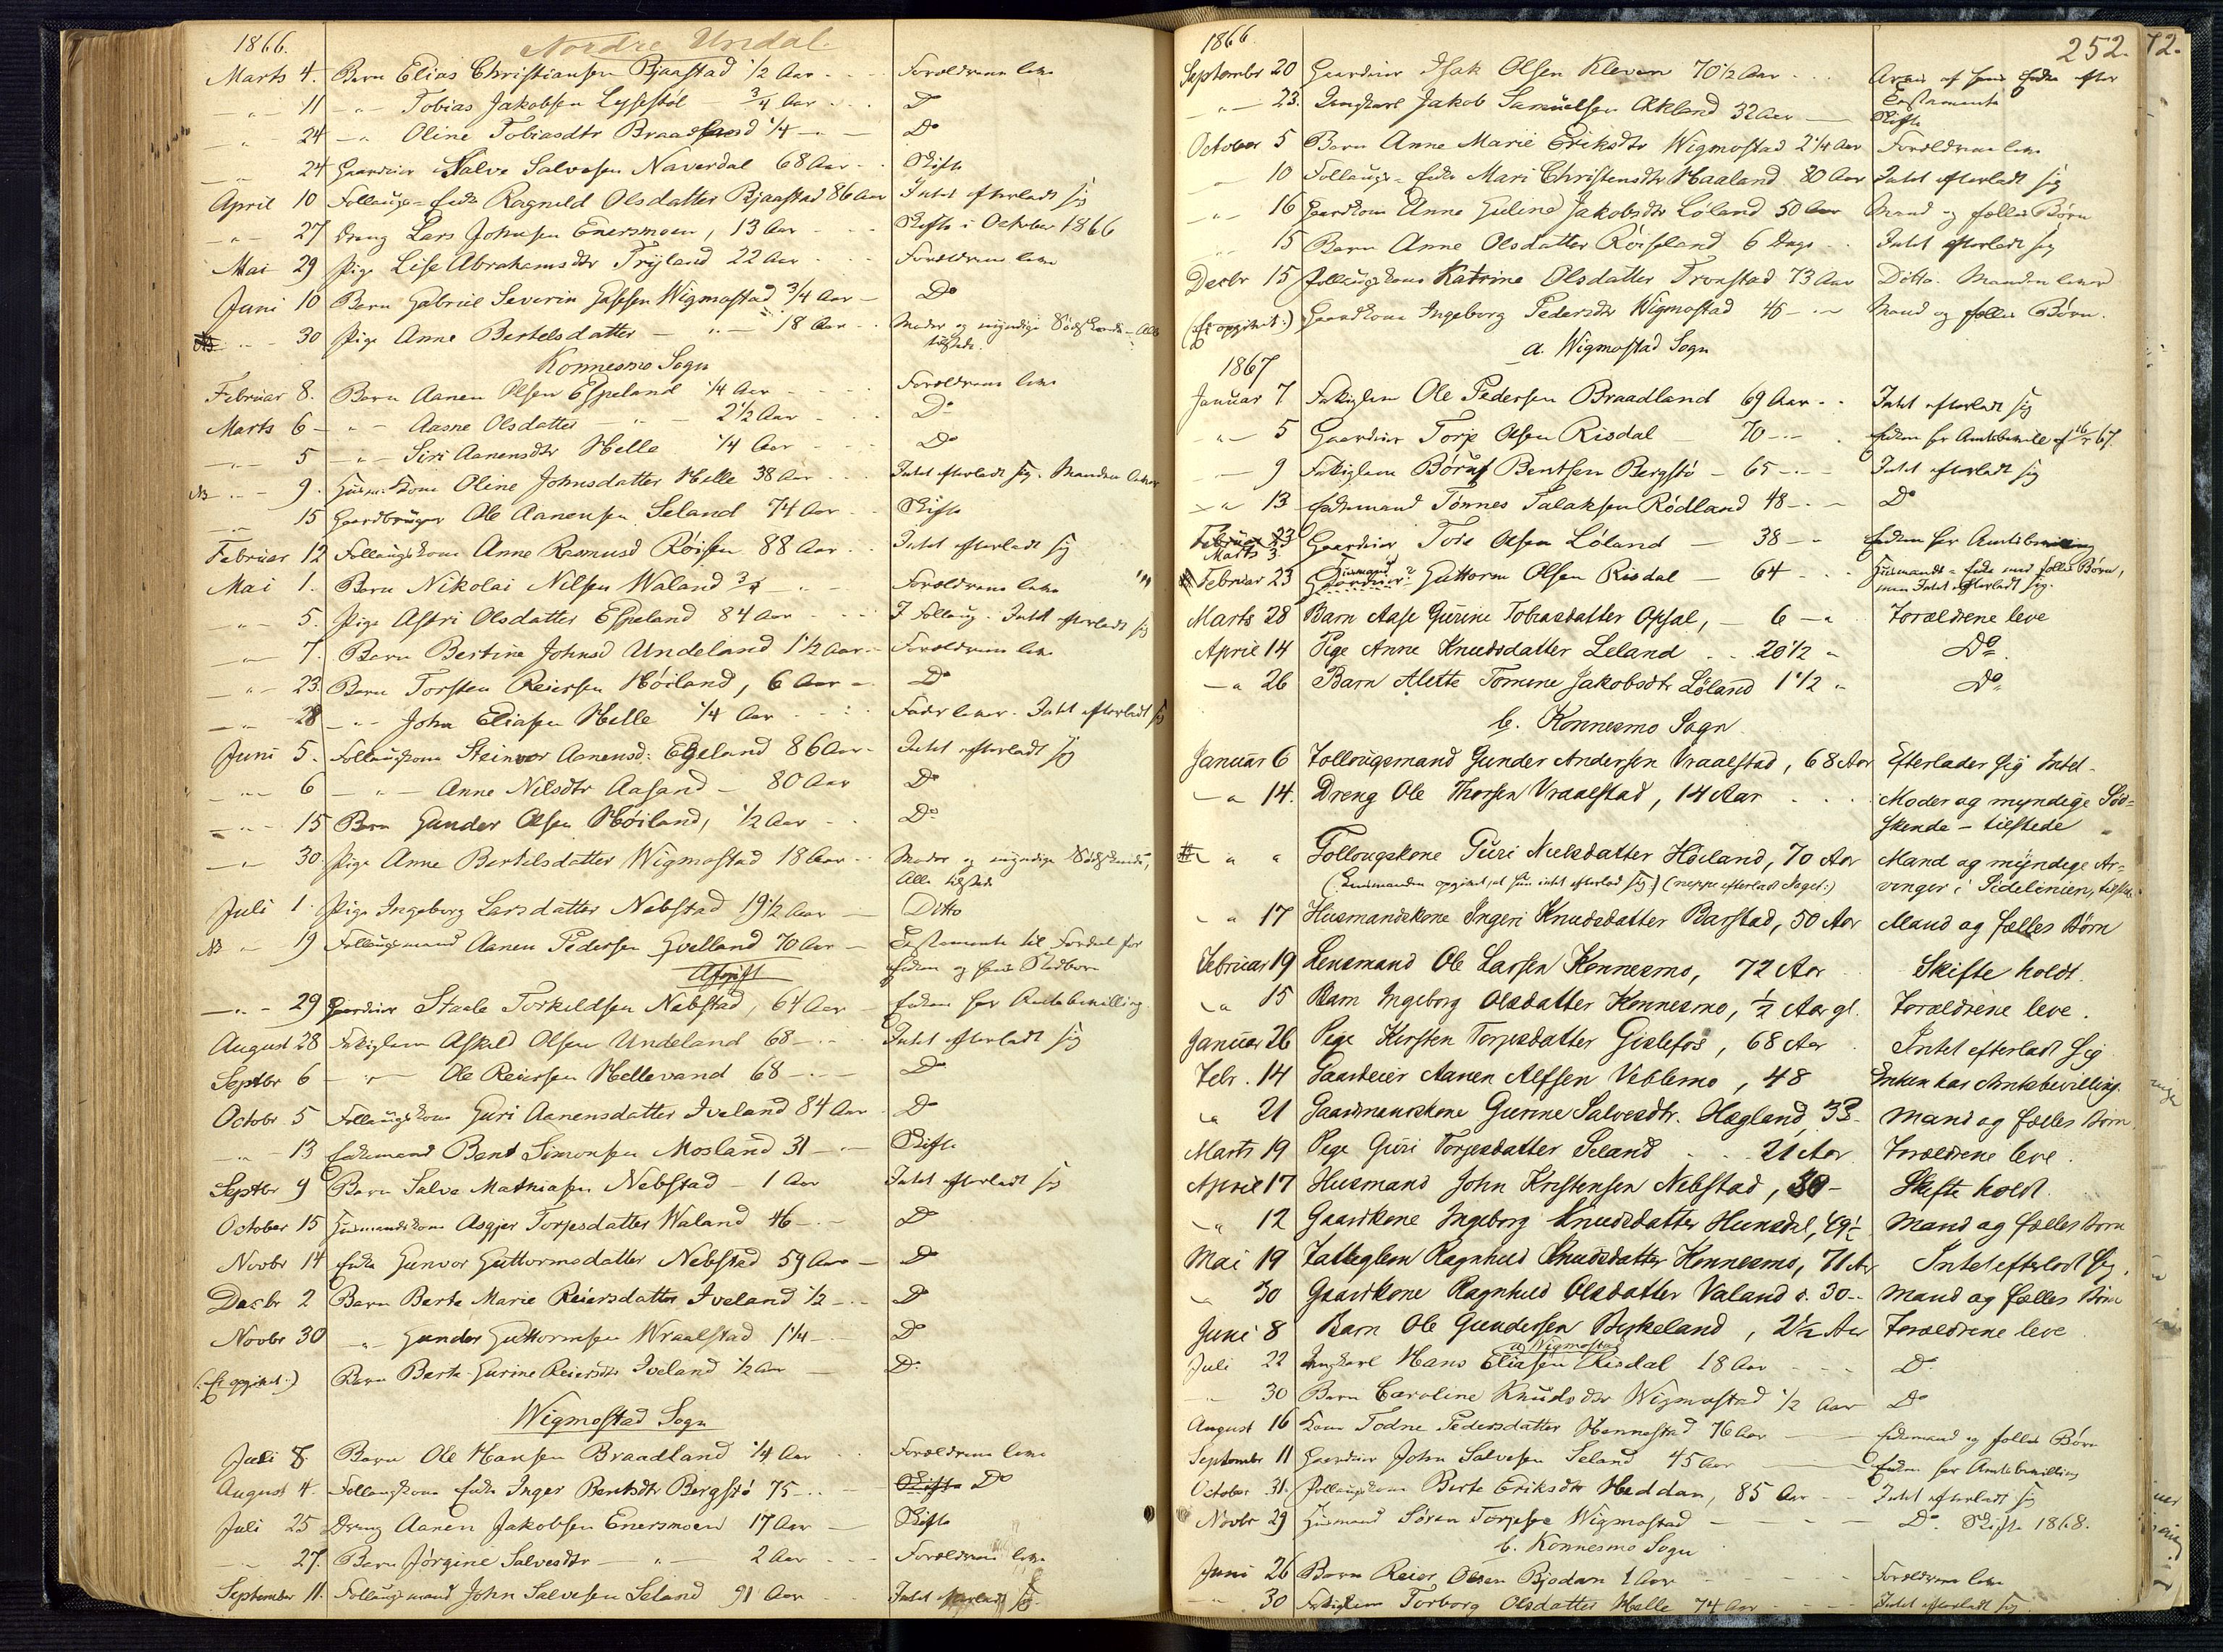 1866.
Nordre Undal.
Marts 4. Barn Elias Christiansen Bjaastad 1/2 Aar - - Forældrene leve
- " - 11 - " - Tobias Jakobsen 3/4 Aar - - Do
- " - 24 - " Oline Tobiasdtr Braadland 1/4 - " - Do
- " - 24 Gaardeier Salve Salvesen Naverdal 68 Aar - - Skifte
April 10 Follaugs-Enke Ragnild Olsdatter Bjaastad 86 Aar Intet efterladt sig
- " - 27 Dreng Lars Johnsen Enersmoen, 13 Aar - - Skifte i October 1866
Mai 29 Pige Lise Abrahamsdtr Tryland 22 Aar - - Forældrene leve
Juni 10 Barn Gabriel Severin Wigmostad 3/4 Aar - Do
- " - 30 Pige Anne Bertelsdatter - " - 18 Aar - - Moder og myndige Sødskende - Alle
tilstede
Konnesmo Sogn
Februar 8. Barn Aanen Olsen Espeland 1/4 Aar - - Forældrene leve
Marts 6 - " - Aasne Olsdatter - " - 2 1/2 Aar - Do
- " - 5 - " - Siri Aanensdtr Helle 1/4 Aar - - Do
NB - " - 9. Husm. Kone Oline Johnsdatter Helle 38 Aar - - Intet efterladt sig. Manden lever
15 Gaardbruger Ole Aanensen Seland 74 Aar - - Skifte
Februar 12 Follaugskone Anne Rasmusd Røisen 88 Aar - - Intet efterladt sig
Mai 1. Barn Nikolai Nilsen Waland 3/4 - " - Forældrene leve
- " - 5. Pige Astri Olsdatter Espeland 84 Aar - - I Follaug. Intet efterladt sig
- " - 7. Barn Bertine Johnsd Undeland 1 1/2 Aar - Forældrene leve
- " - 23. Barn Torsten Reiersen Høiland, 6 Aar - Do
- " - 28 - " - John Eliasen Helle 1/4 Aar - - Fader lever. Intet efterladt sig
Juni 5. Follaugskone Steinvor Aanensd: Egeland 86 Aar - Intet efterladt sig
- " - 6 - " - Anne Nilsdtr Aasand - 80 Aar Do
- " - 15 Barn Gunder Olsen Høiland, 1/2 Aar - - Do
- " - 30. Pige Anne Bertelsdatter Wigmostad 18 Aar - - Moder og myndige Sødskende,
Alle tilstede
Juli 1. Pige Ingeborg Larsdatter Nebstad 19 1/2 Aar - Ditto
NB - 19 Follaugsmand Aanen Pedersen Gvelland 70 Aar - Testamente til Fordel for
Afgift Enken og hans Stedbørn
- " - 29 Gaardeier Staale Torkildsen Nebstad, 64 Aar - Enken har Amtsbevilling
August 28 Fattiglem Askild Olsen Undeland 68 - " - Intet efterladt sig
Septbr 6 - " - Ole Reiersen Hellevand 68 - " - Do
Octobr 5 Follaugskone Guri Aanensdatter Iveland 84 Aar Do
- " - 13 Enkemand Bent Simonsen Mosland 31 - " - Skifte
Septbr 9 Barn Salve Mathiasen Nebstad - 1 Aar Intet efterladt sig
October 15 Husmandskone Asgjer Torjesdatter Waland 46 - " - Do
Novbr 14 Enke Gunvor Guttormsdatter Nebstad 59 Aar - Do
Decbr 2 Barn Berte Marie Reiersdatter Iveland 1/2 - " - Do
Novbr 30 " Gunder Guttormsen Wraalstad 1 1/4 - " - Do
(Ei opgivet.) Barn Berte Gurine Reiersdtr Iveland 1/2 Aar - Do
Wigmostad Sogn
Juli 8. Barn Ole Hansen Braadland 1/4 Aar - - Forældrene leve
August 4. Follaugskone Enke Inger Bentsdtr Bergstø 75 - - Skifte Do
Juli 25 Dreng Aanen Jakobsen Enersmoen 17 Aar - Skifte
- " - 27. Barn Jørgine Salvesdtr - " - 2 Aar - - Forældrene leve
September 11. Follaugsmand John Salvesen Seland 91 Aar - Intet efterladt sig
1866. 252. 72.
September 20 Gaardeier Isak Olsen Kleven 70 1/2 Aar - - Arves af hans Enke efter
Testamente
- " - 23. Ungkarl Jakob Samuelsen Okland 32 Aar - Skifte
October 5 Barn Anne Marie Eriksdtr Wigmostad 2 1/4 Aar Forældrene leve
- 10 Follaugs-Enke Mari Christensdtr Haaland 80 Aar Intet efterladt sig
- " - 16 Gaardkone Anne Guline Jakobsdtr Løland 50 Aar Mand og fælles Børn
" 15 Barn Anne Olsdatter Røiseland 6 Dage - - Intet efterladt sig
Decbr 15 Follaugskone Katrine Olsdatter Tronstad 73 Aar Ditto. Manden lever
(Ei opgivet.) Gaardkone Ingeborg Pedersdtr Wigmostad 45 - " - Mand og fælles Børn.
a. Wigmostad Sogn
1867
Januar 7 Fattiglem Ole Pedersen Braadland 69 Aar - - Intet efterladt sig
- " - 5 Gaardeier Torje Olsen Risdal - 70 - " - Enken har Amtsbeville af 16/ 67.
- 9 Fattiglem Bentsen Bergstø - 65 - " - Intet efterladt sig
- " 13 Enkemand Tønnes Salaksen Rødland 48 - " - Do
Februar 23
Marts 3 Gaardeier Tore Olsen Løland - 38 - " Enken har Amtsbevilling
Februar 23 Husmand Gaardeier? Guttorm Olsen Risdal - 64 - - Husmands-Enke med fælles Børn,
men Intet efterladt sig.
Marts 28 Barn Aase Gurine Tobiasdatter Opsal, - 6 - " Forældrene leve
April 14 Pige Anne Knudsdatter Leland - - 20 1/2 " Do.
- " 26 Barn Alette Tomine Jakobsdtr Løland 1 1/2 " Do.
b. Konnesmo Sogn
Januar 6 Follougsmand Gunder Andersen Vraalstad, 68 Aar Efterlader sig Intet.
- " 14. Dreng Ole Thorsen Vraalstad, 14 Aar . . . Moder og myndige Sød-
skende - tilstede
" " Follougskone Guri Nielsdatter Høiland, 70 Aar Mand og myndige Ar-
(Enkemanden opgivet, at hun intet efterlod sig.) (neppe efterladt Noget:) vinger i Sidelinien, tilstede
- " 17 Husmandskone Ingeri Knudsdatter Barstad, 50 Aar Mand og fælles Børn
Februar 19 Lensmand Ole Larsen Konnesmo, 72 Aar Skifte holdt.
- " 15 Barn Ingeborg Olsdatter Konnesmo, 1/2 Aar gl. Forældrene leve.
Januar 26 Pige Kirsten Torjesdatter Gislefos, 68 Aar . Intet efterladt sig
Febr. 14 Gaardeier Aanen Alfsen Veblemo, 48 Enken har Amtsbevilling.
- " 21 Gaardmandskone Gurine Salvesdtr. Hægland, 33 - Mand og fælles Børn.
Marts 19 Pige Guri Torjesdatter Seland - - 21 Aar Forældrene leve.
April 17 Husmand John Kristensen Nebstad, 38 - Skifte holdt.
- " 12 Gaardkone Ingeborg Knudsdatter Hunsdal, 49 1/2 Mand og fælles Børn
Mai 19 Fattiglem Ragnhild Knudsdatter Konnesmo, 71 Ar Intet efterladt sig.
- " 30 Gaardkone Ragnhild Olsdatter Valand s. 30 - - Mand og fælles Børn
Juni 8 Barn Ole Gundersen Birkeland, 2 1/2 Aar Forældrene leve
a) Wigmostad
Juli 22 Ungkarl Hans Eliasen Risdal 18 Aar - - - Do
- " 30 Barn Caroline Knudsdtr Wigmostad 1/2 Aar Do
August 16 Kone Todne Pedersdatter Hennestad 76 Aar - Enkemand og fælles Børn
September 11 Gaardeier John Salvesen Seland 45 Aar - Enken har Amtsbevilling
October 31. Follaugskone Berte Eriksdtr Heddan, 85 Aar - - Intet efterladt sig
Novbr 29 Husmand Søren Torjesen Wigmostad - - - Do. Skifte 1868.
b. Konnesmo Sogn
Juni 26 Barn Reier Olsen Bjodan 1 Aar - - - Forældrene leve
- " 30 Fattiglem Torborg Olsdatter Helle 74 Aar - - - Intet efterladt sig.